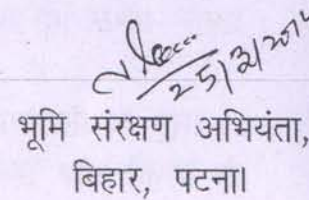 25/3/201
भूमि संरक्षण अभियंता,
बिहार, पटना।